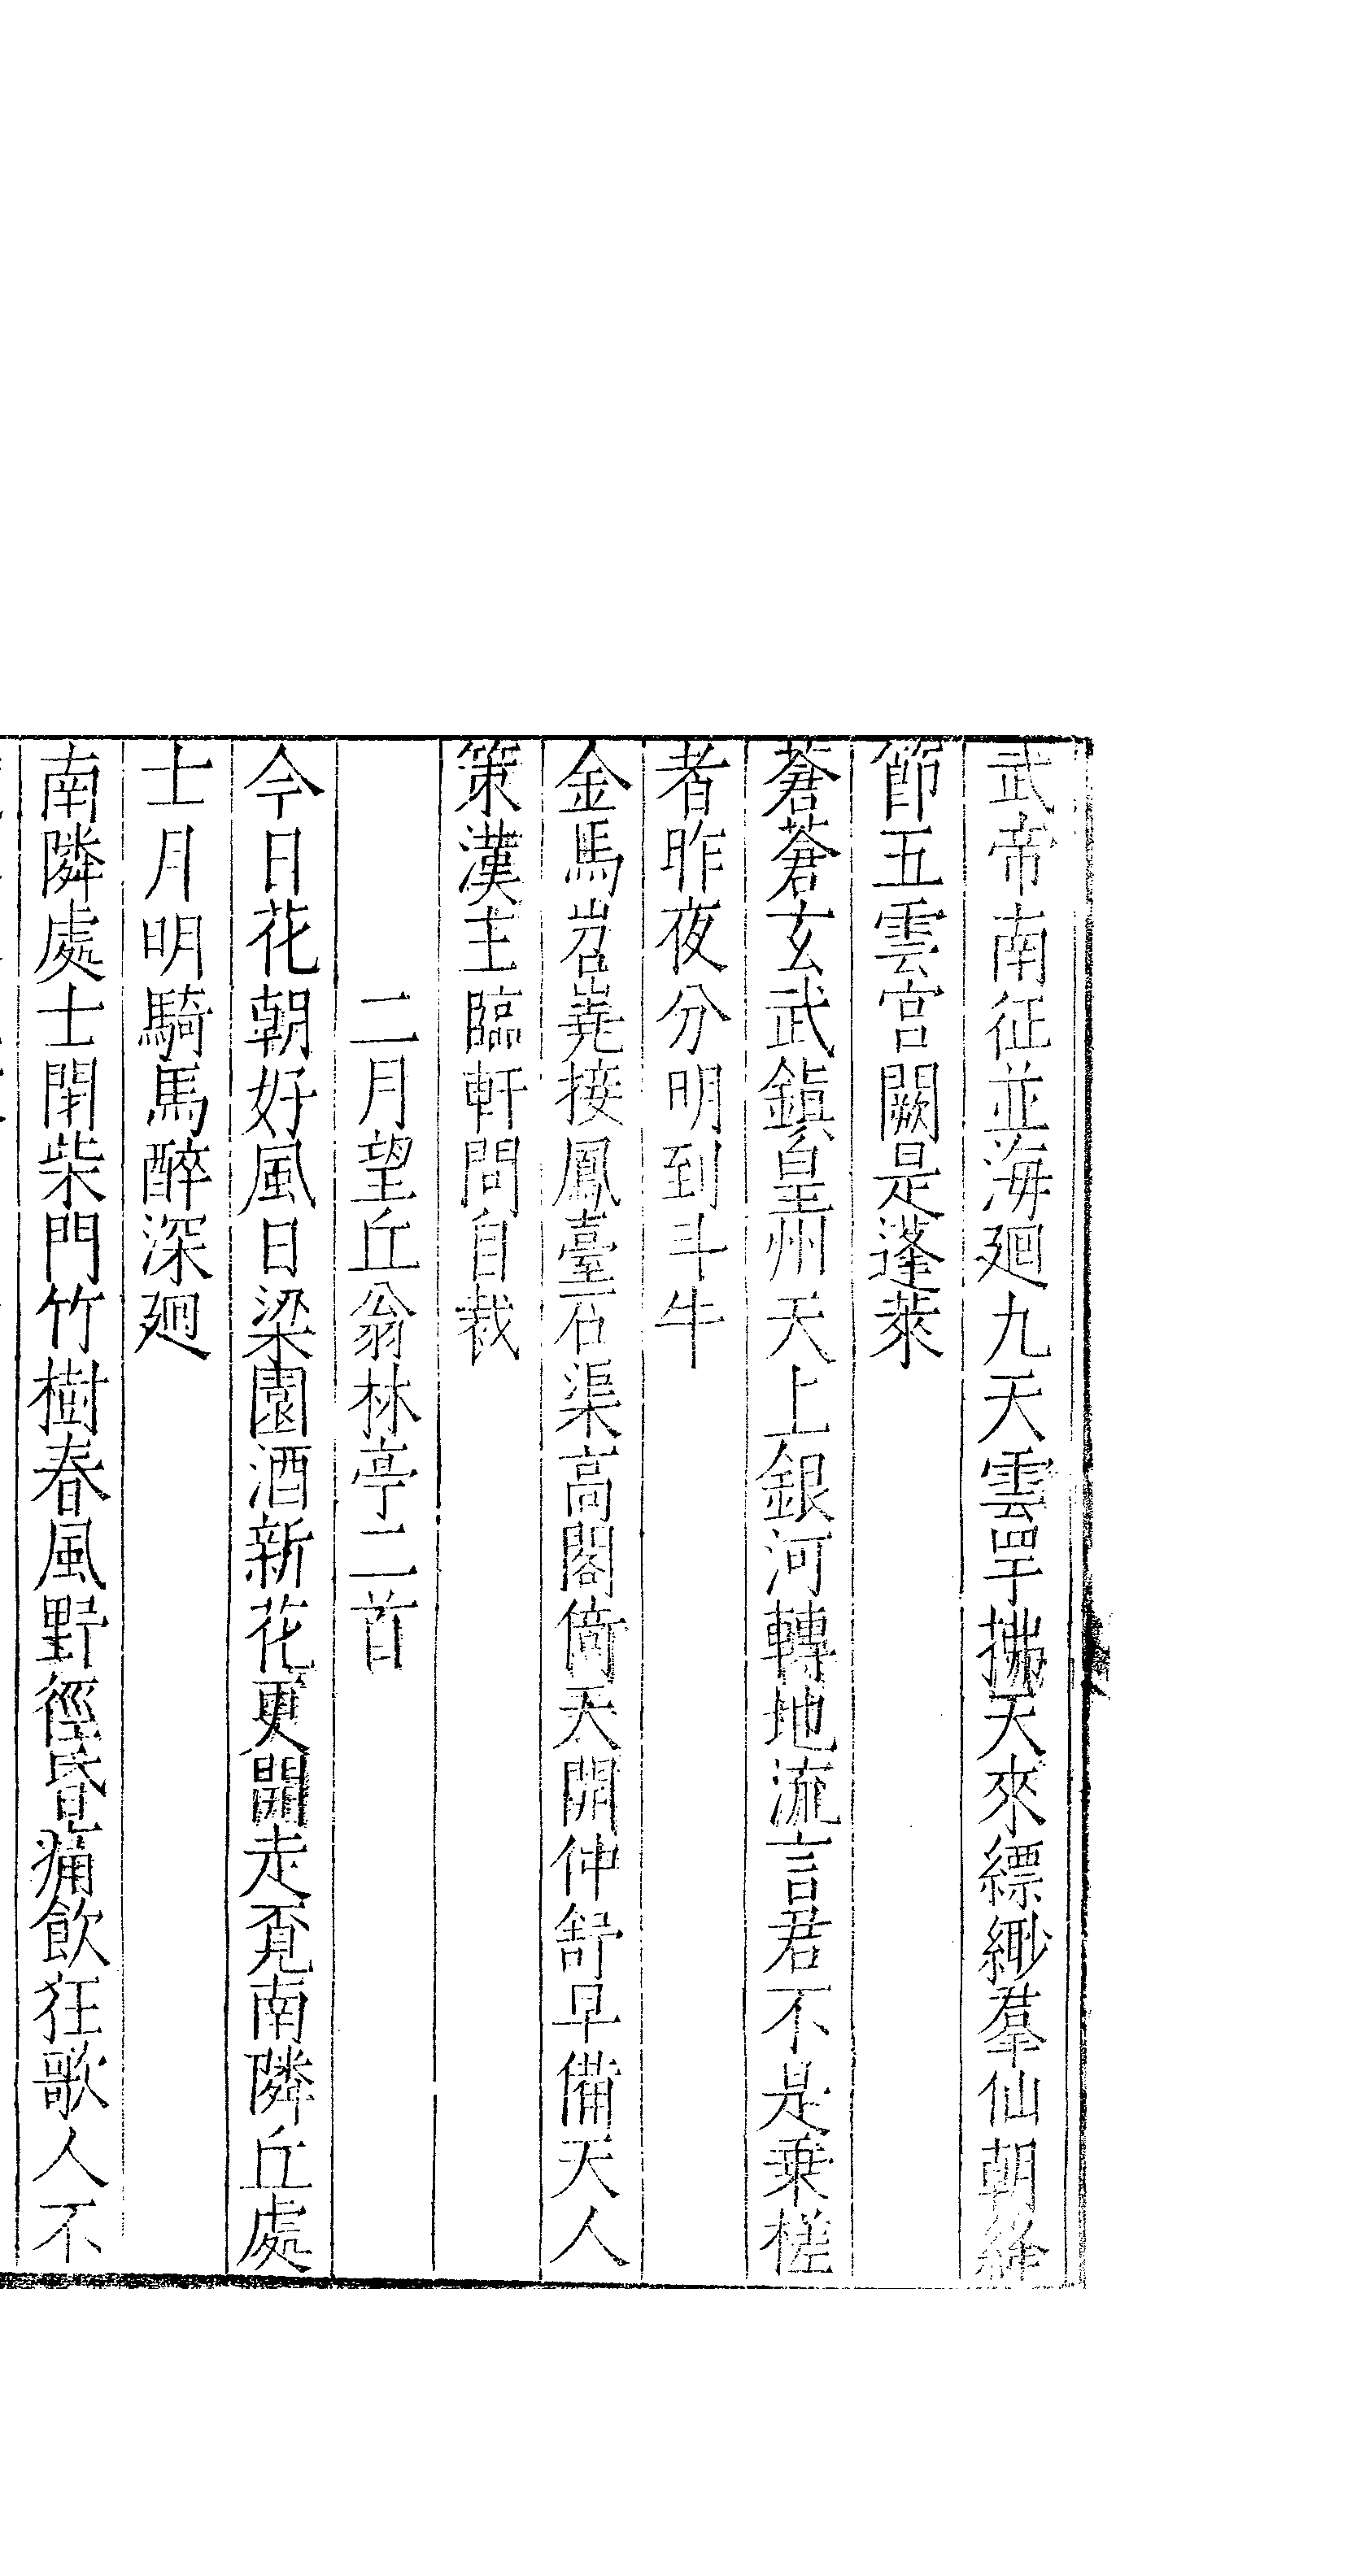 武帝南征並海廻九天雲罕拂天來縹緲羣仙朝絳
節五雲宫闕是蓬萊
蒼蒼玄武鎮皇州天上銀河轉地流言君不是乗槎
者昨夜分明到斗牛
金馬岧嶤接鳳臺石渠高閣倚天開仲舒早備天人
策漢主臨軒問自裁
二月望丘翁林亭二首
今日花朝好風日梁園酒新花更開走覔南隣丘處
士月明騎馬醉深廻
南隣處士閉柴門竹樹春風野徑昏痛飲狂歌人不